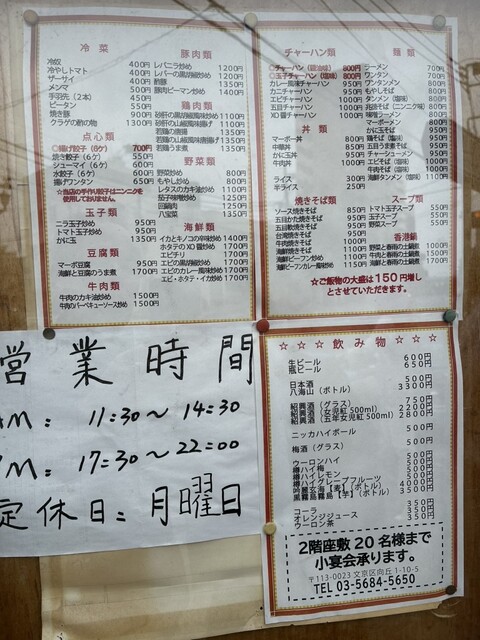 冷菜
冷奴 400円
冷やしトマト 400円
ザーサイ 400円
メンマ 500円
手羽先（2本） 450円
ピータン 550円
焼き豚 900円
クラゲの酢の物 1300円
点心類
○揚げ餃子（6ケ） 700円
焼き餃子（6ケ） 550円
シューマイ（6ケ） 600円
水餃子（6ケ） 600円
揚げワンタン 650円
☆当店の手作り餃子はニンニクを
使用しておりません。
玉子類
ニラ玉子炒め
トマト玉子炒め
かに玉 1350円
豆腐類
マーボ豆腐
海鮮と豆腐のうま煮 1700円
牛肉類
牛肉のカキ油炒め 1500円
牛肉のバーベキューソース炒め 1500円
豚肉類
レバニラ炒め 1200円
レバーの黒胡椒炒め 1200円
酢豚
豚肉ピーマン炒め 1400円
鶏肉類
砂肝の黒胡椒風味炒め 1100円
砂肝の山椒風味唐揚げ 1100円
若鶏の唐揚 1350円
若鶏の山椒風味揚げ 1350円
若鶏うま煮 1350円
野菜類
野菜炒め 800円
もやし炒め 800円
レタスのカキ油炒め 1100円
茄子味噌炒め 1250円
回鍋肉 1250円
八宝菜 1350円
海鮮類
イカとキノコの辛炒め 1400円
ホタテのXO醤炒め 1700円
エビチリ 1700円
エビの黒胡椒炒め 1700円
エビのカレー風味炒め 1700円
エビ・ホタテ・イカ炒め 1700円
チャーハン類
○チャーハン（醤油味） 800円
○玉子チャーハン（塩味） 800円
カレー風味チャーハン 950円
カニチャーハン 950円
エビチャーハン
五目チャーハン
XO醤チャーハン
丼類
マーボー丼
中華丼
かに玉丼
牛肉丼
ライス 300円
半ライス 250円
焼きそば類
ソース焼きそば 850円
五目かた焼きそば 950円
五目軟焼きそば 950円
台湾焼きそば
牛肉焼きそば
海鮮焼きそば
海鮮ビーフン炒め
海鮮ビーフンカレー風味 1150円
麺類
ラーメン 700円
ワンタン
もやしそば
ワンタンメン
タンメン（塩味）
マーボーメン
かに玉そば
鶏そば（塩味）
五目うま煮そば
チャーシューメン
牛肉そば
エビそば（塩味） 1000円
海鮮タンメン（塩味） 1100円
スープ類
玉子スープ 550円
トマト玉子スープ 550円
野菜スープ
香港鍋
野菜と春雨の土鍋煮
牛肉と春雨の土鍋煮
海鮮と春雨の土鍋煮
☆ご飯物の大盛は150円増し
とさせていただきます。
営業時間
AM: 11:30～14:30
PM: 17:30～22:00
定休日: 月曜日
☆☆☆飲み物☆☆☆
生ビール 600円
瓶ビール 650円
日本酒 500円
八海山（ボトル） 3300円
紹興酒（グラス） 750円
紹興酒（女児紅500ml） 2200円
紹興酒（五年女児紅500ml） 2800円
ニッカハイボール 500円
梅酒（グラス） 500円
ウーロンハイ 500円
樽ハイ梅 500円
樽ハイレモン 500円
樽ハイグレープフルーツ 500円
吟麗玄海【麦】（ボトル） 4000円
黒霧島霧島【芋】（ボルト） 3500円
コーラ 350円
オレンジジュース 350円
ウーロン茶 350円
2階座敷20名様まで
小宴会承ります。
〒113-0023 文京区向丘1-10-5
TEL 03-5684-5650